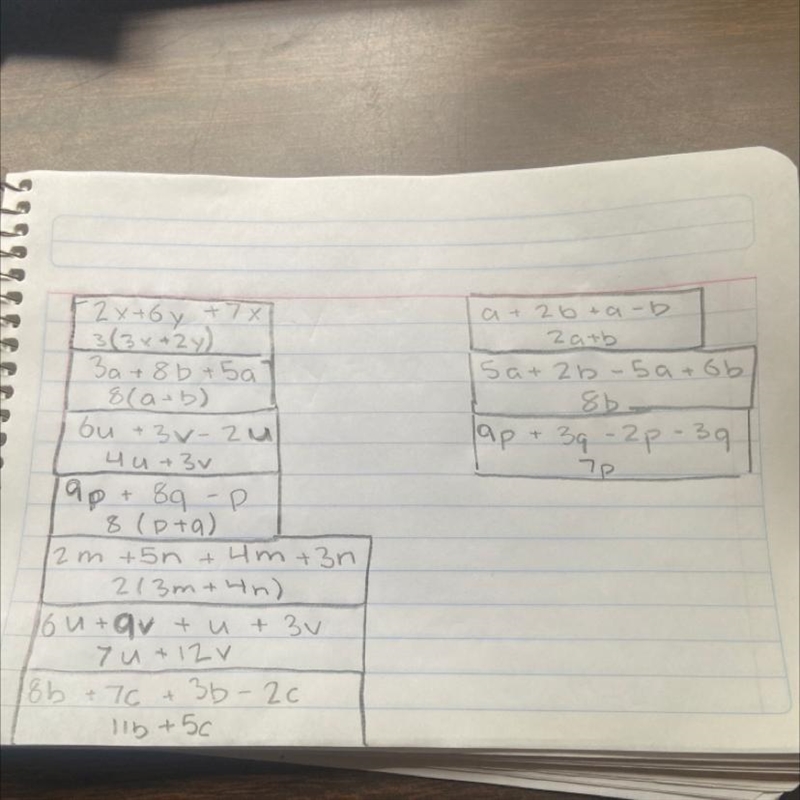 2x+6y +7x
3(3x+2y)
3a+8b+5a
8(a+b)
6u+3v-2u
4u+3v
9p + 8q - p
8 (p+q)
2m +5n + 4m +3n
2(3m+4n)
6u+9v + u + 3v
7u+12v
8b + 7c + 3b - 2c
11b +5c
a + 2b + a - b
2a+b
5a+2b - 5a + 6b
8b
9p + 3q - 2p - 3q
7p